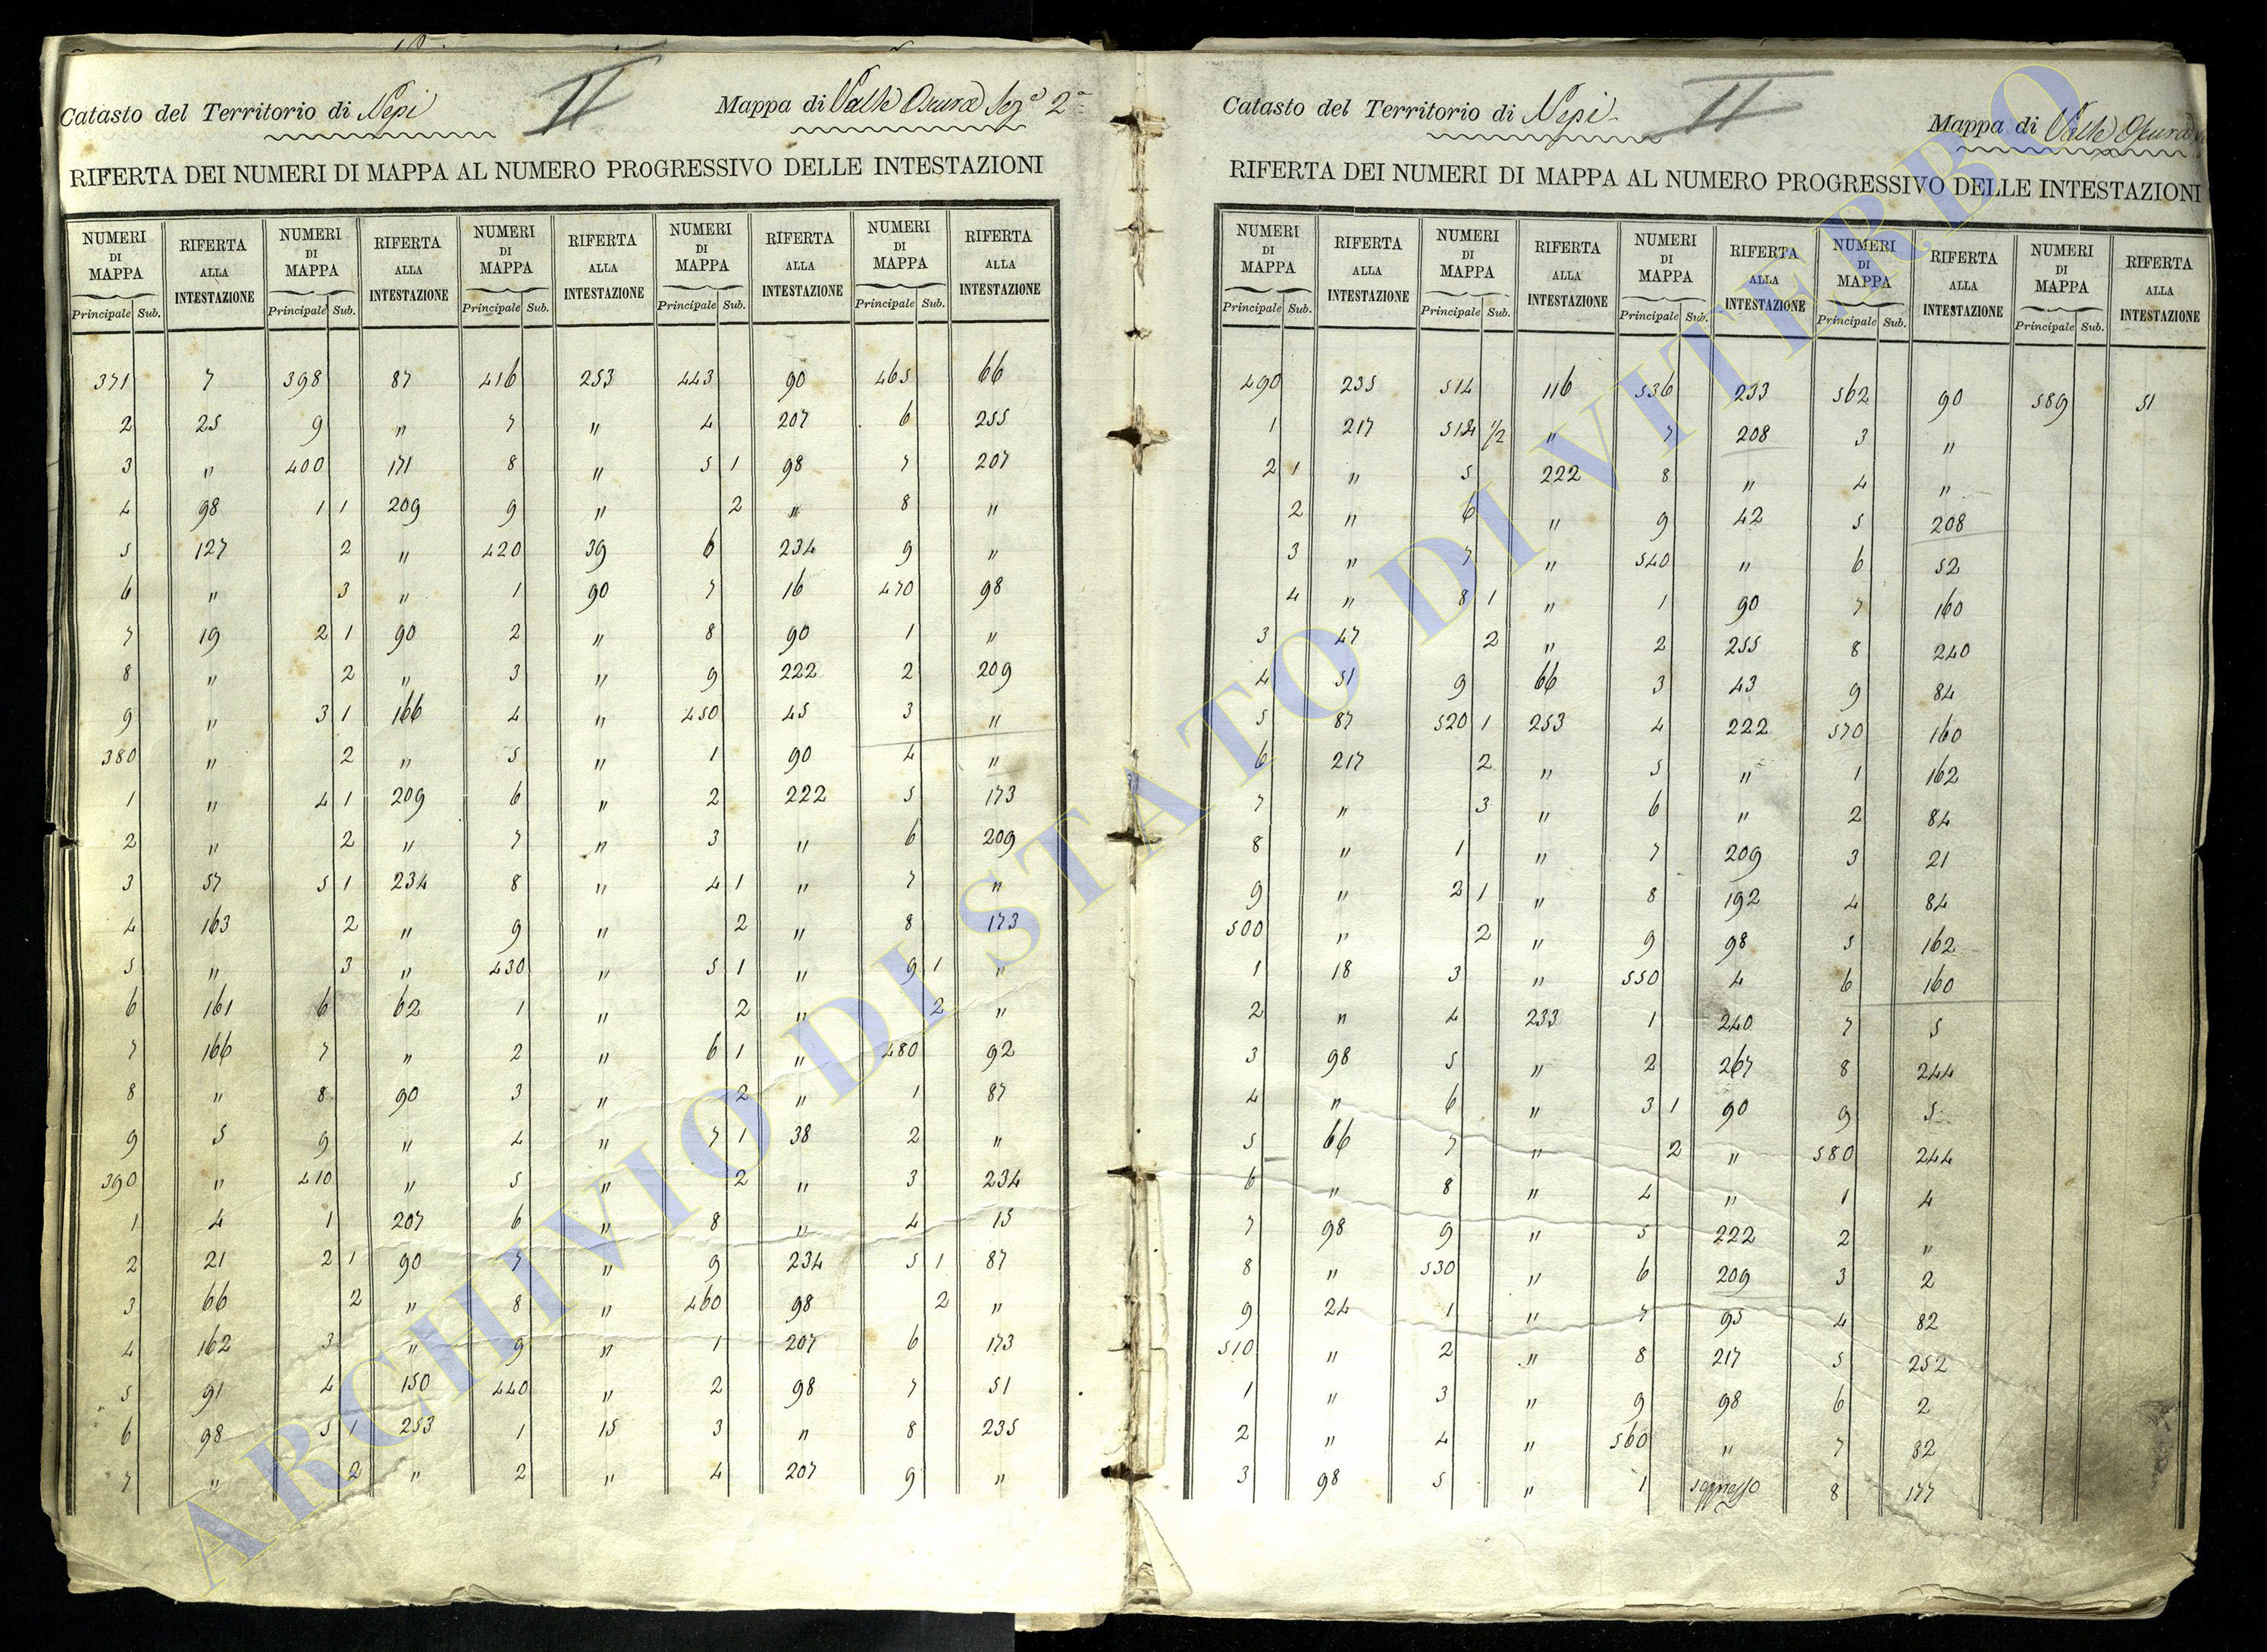 Catasto del Territorio di Nepi II Mappa di Valle Oscura Sez.e 2a
RIFERTA DEI NUMERI DI MAPPA AL NUMERO PROGRESSIVO DELLE INTESTAZIONI
NUMERI DI MAPPA RIFERTA ALLA INTESTAZIONE NUMERI DI MAPPA RIFERTA ALLA INTESTAZIONE NUMERI DI MAPPA RIFERTA ALLA INTESTAZIONE NUMERI DI MAPPA RIFERTA ALLA INTESTAZIONE NUMERI DI MAPPA RIFERTA ALLA INTESTAZIONE
Principale Sub. Principale Sub. Principale Sub. Principale Sub. Principale Sub.
371 7 398 87 416 253 443 90 465 66
2 25 9 " 7 " 4 207 6 255
3 " 400 171 8 " 5 1 98 7 207
4 98 1 1 209 9 " 2 " 8 "
5 127 2 " 420 39 6 234 9 "
6 " 3 " 1 90 7 16 470 98
7 19 2 1 90 2 " 8 90 1 "
8 " 2 " 3 " 9 222 2 209
9 " 3 1 166 4 " 450 45 3 "
380 " 2 " 5 " 1 90 4 "
1 " 4 1 209 6 " 2 222 5 173
2 " 2 " 7 " 3 " 6 209
3 57 5 1 234 8 " 4 1 " 7 "
4 163 2 " 9 " 2 " 8 173
5 " 3 " 430 " 5 1 " 9 1 "
6 161 6 62 1 " 2 " 2 "
7 166 7 " 2 " 6 1 " 480 92
8 " 8 90 3 " 2 " 1 87
9 5 9 " 4 " 7 1 38 2 "
390 " 410 " 5 " 2 " 3 234
1 4 1 207 6 " 8 " 4 15
2 21 2 1 90 7 " 9 234 5 1 87
3 66 2 " 8 " 460 98 2 "
4 162 3 " 9 " 1 207 6 173
5 91 4 150 440 " 2 98 7 51
6 98 5 1 253 1 15 3 " 8 235
7 " 2 " 2 " 4 207 9 "
Catasto del Territorio di Nepi II Mappa di Valle Oscura
RIFERTA DEI NUMERI DI MAPPA AL NUMERO PROGRESSIVO DELLE INTESTAZIONI
NUMERI DI MAPPA RIFERTA ALLA INTESTAZIONE NUMERI DI MAPPA RIFERTA ALLA INTESTAZIONE NUMERI DI MAPPA RIFERTA ALLA INTESTAZIONE NUMERI DI MAPPA RIFERTA ALLA INTESTAZIONE NUMERI DI MAPPA RIFERTA ALLA INTESTAZIONE
Principale Sub. Principale Sub. Principale Sub. Principale Sub. Principale Sub.
490 235 514 116 536 233 562 90 589 51
1 217 514 1/2 " 7 208 3 "
2 1 " 5 222 8 " 4 "
2 " 6 " 9 42 5 208
3 " 7 " 540 " 6 52
4 " 8 1 " 1 90 7 160
3 47 2 " 2 255 8 240
4 51 9 66 3 43 9 84
5 87 520 1 253 4 222 570 160
6 217 2 " 5 " 1 162
7 " 3 " 6 " 2 84
8 " 1 " 7 209 3 21
9 " 2 1 " 8 192 4 84
500 " 2 " 9 98 5 162
1 18 3 " 550 4 6 160
2 " 4 233 1 240 7 5
3 98 5 " 2 267 8 244
4 " 6 " 3 1 90 9 5
5 66 7 " 2 " 580 244
6 " 8 " 4 " 1 4
7 98 9 " 5 222 2 "
8 " 530 " 6 209 3 2
9 24 1 " 7 95 4 82
510 " 2 " 8 217 5 252
1 " 3 " 9 98 6 2
2 " 4 " 560 " 7 32
3 98 5 " 1 soppresso 8 177
ARCHIVIO DI STATO DI VITERBO